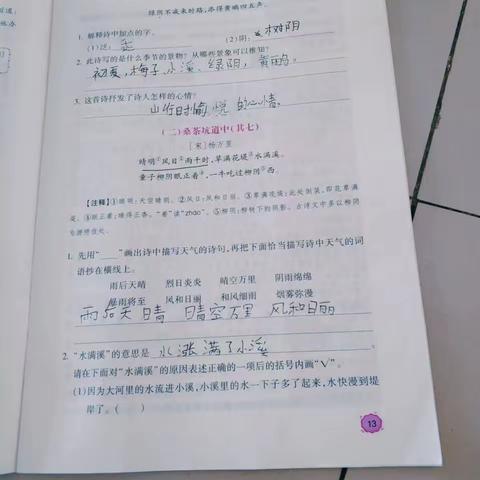 绿阴不减来时路，添得黄鹂四五声。
1. 解释诗中加点的字。
(1)泛： (2)阴：树阴
2. 此诗写的是什么季节的景物？从哪些景象可以推知？
初夏，梅子、小溪、绿阴，黄鹂。
3. 这首诗抒发了诗人怎样的心情？
山行时愉悦的心情。
(二)桑茶坑道中(其七)
[宋]杨万里
晴明①风日②雨干时，草满花堤③水满溪。
童子柳阴眠正着④，一牛吃过柳阴⑤西。
【注释】①晴明：天空晴朗。②风日：风和日丽。③草满花堤：此处倒装，即花草满
堤。④眠正着：睡得正香。“着”读“zháo”。⑤柳阴：柳树下的阴影。古诗文中多以柳阴
1. 先用“____”画出诗中描写天气的诗句，再把下面恰当描写诗中天气的词
语抄在横线上。
雨后天晴 烈日炎炎 晴空万里 阴雨绵绵
暴雨将至 风和日丽 和风细雨 烟雾弥漫
雨后天晴 晴空万里 风和日丽
2. “水满溪”的意思是 水涨满了小溪 。
请在下面对“水满溪”的原因表述正确的一项后的括号内画“√”。
(1)因为大河里的水流进小溪，小溪里的水一下子多了起来，水快漫到堤
岸了。( )
13